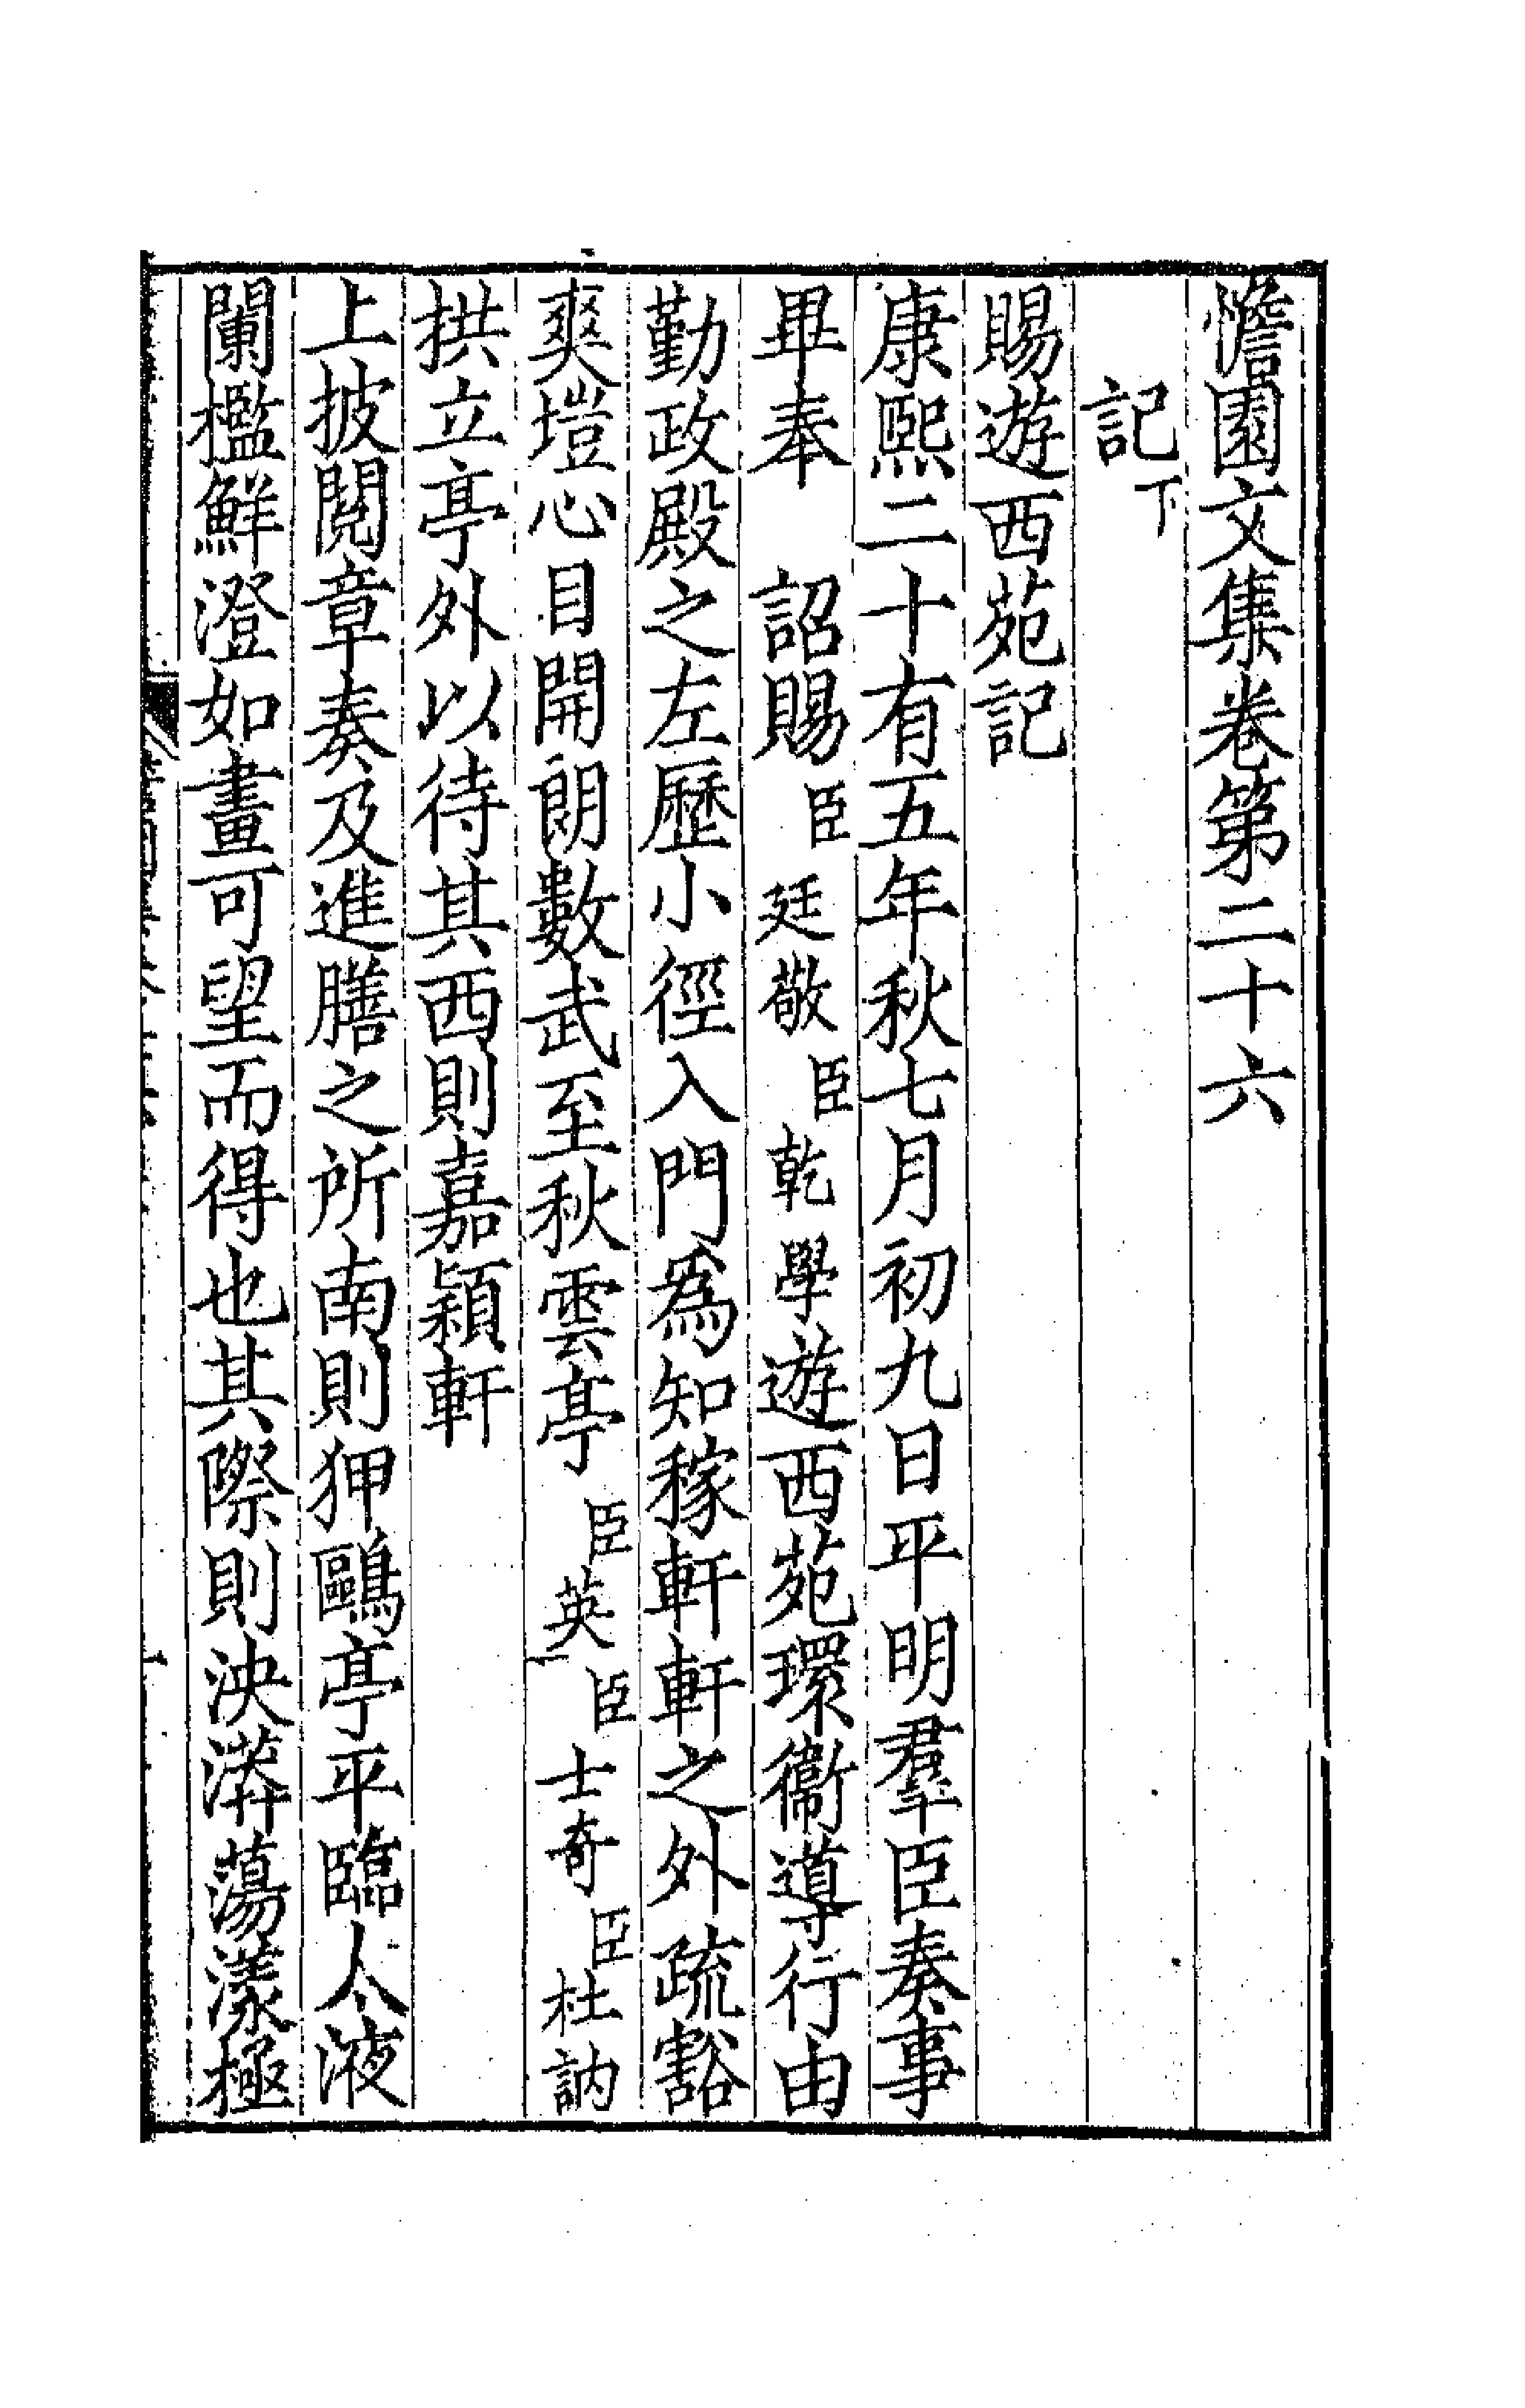 憺園文集卷第二十六
記下
賜遊西苑記
康熙二十有五年秋七月初九日平明羣臣奏事
畢奉　詔賜臣廷敬臣乾學遊西苑環衞導行由
勤政殿之左歷小徑入門爲知稼軒軒之外疏豁
爽塏心目開朗數武至秋雲亭臣英臣士奇臣杜訥
拱立亭外以待其西則嘉穎軒
上披閱章奏及進膳之所南則狎鷗亭平臨太液
闌檻鮮澄如畫可望而得也其際則泱漭蕩漾極